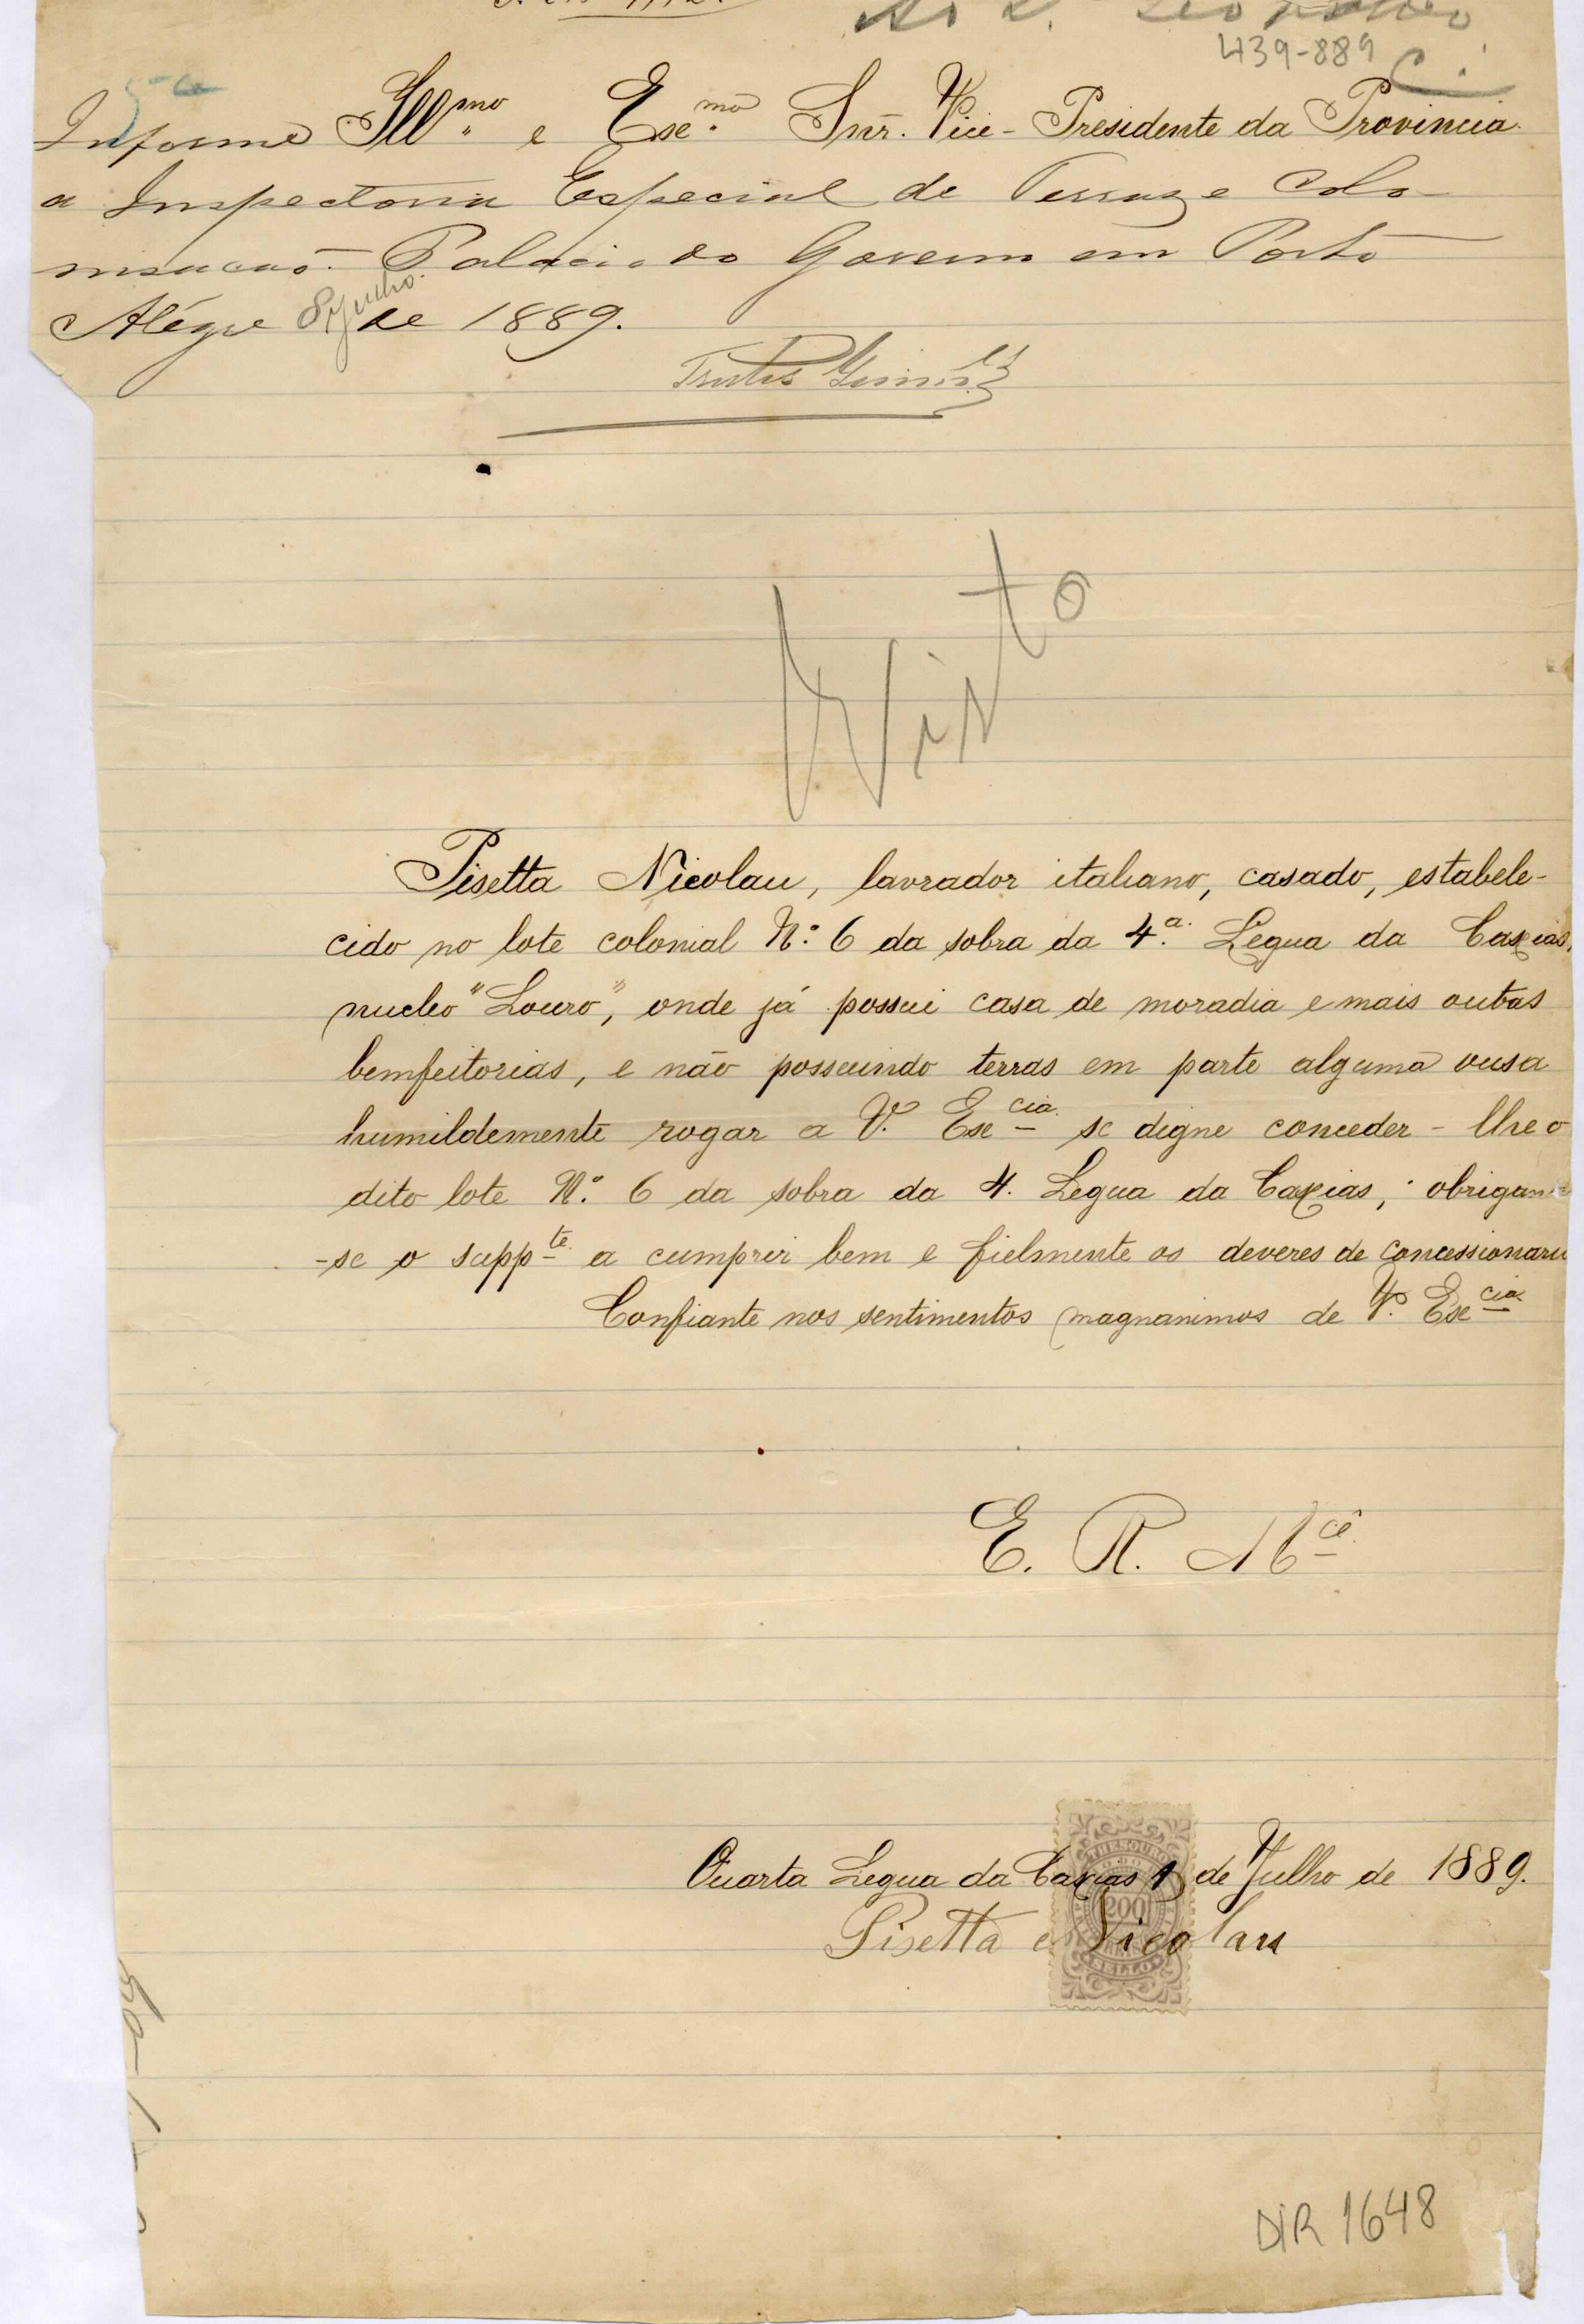 439-889
5a
Illmo e Excmo Snr. Vice-Presidente da Provincia.
Informe
a Inspectoria Especial de Terras e Colo-
nisacaõ. Palacio do Governo em Porto
Alegre 8 Julho de 1889.
Visto
Pisetta Nicolau, lavrador italiano, casado, estabele-
cido no lote colonial N.º 6 da sobra da 4.ª Legua da Caxias,
nucleo "Louro", onde já possui casa de moradia e mais outras
bemfeitorias, e não possuindo terras em parte alguma ousa
humildemente rogar a V. Excia. se digne conceder-lhe o
dito lote N.º 6 da sobra da 4. Legua da Caxias, obrigan
-se o suppte. a cumprir bem e fielmente os deveres de concessionari
Confiante nos sentimentos magnanimos de V. Excia.
E. R. Mcê.
Quarta Legua da Caxias 1 de Julho de 1889.
Pisetta Nicolau
THESOURO
200
SELLO
DIR 1648